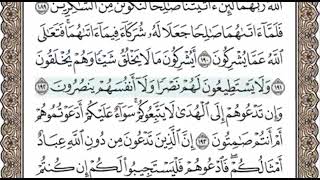 ٱللَّهَ رَبَّهُمَا لَئِنۡ ءَاتَيۡتَنَا صَٰلِحٗا لَّنَكُونَنَّ مِنَ ٱلشَّٰكِرِينَ ١٨٩
فَلَمَّآ ءَاتَىٰهُمَا صَٰلِحٗا جَعَلَا لَهُۥ شُرَكَآءَ فِيمَآ ءَاتَىٰهُمَاۚ فَتَعَٰلَى
ٱللَّهُ عَمَّا يُشۡرِكُونَ ١٩٠ أَيُشۡرِكُونَ مَا لَا يَخۡلُقُ شَيۡـٔٗا وَهُمۡ يُخۡلَقُونَ
١٩١ وَلَا يَسۡتَطِيعُونَ لَهُمۡ نَصۡرٗا وَلَآ أَنفُسَهُمۡ يَنصُرُونَ ١٩٢
وَإِن تَدۡعُوهُمۡ إِلَى ٱلۡهُدَىٰ لَا يَتَّبِعُوكُمۡۚ سَوَآءٌ عَلَيۡكُمۡ أَدَعَوۡتُمُوهُمۡ
أَمۡ أَنتُمۡ صَٰمِتُونَ ١٩٣ إِنَّ ٱلَّذِينَ تَدۡعُونَ مِن دُونِ ٱللَّهِ عِبَادٌ
أَمۡثَالُكُمۡۖ فَٱدۡعُوهُمۡ فَلۡيَسۡتَجِيبُواْ لَكُمۡ إِن كُنتُمۡ